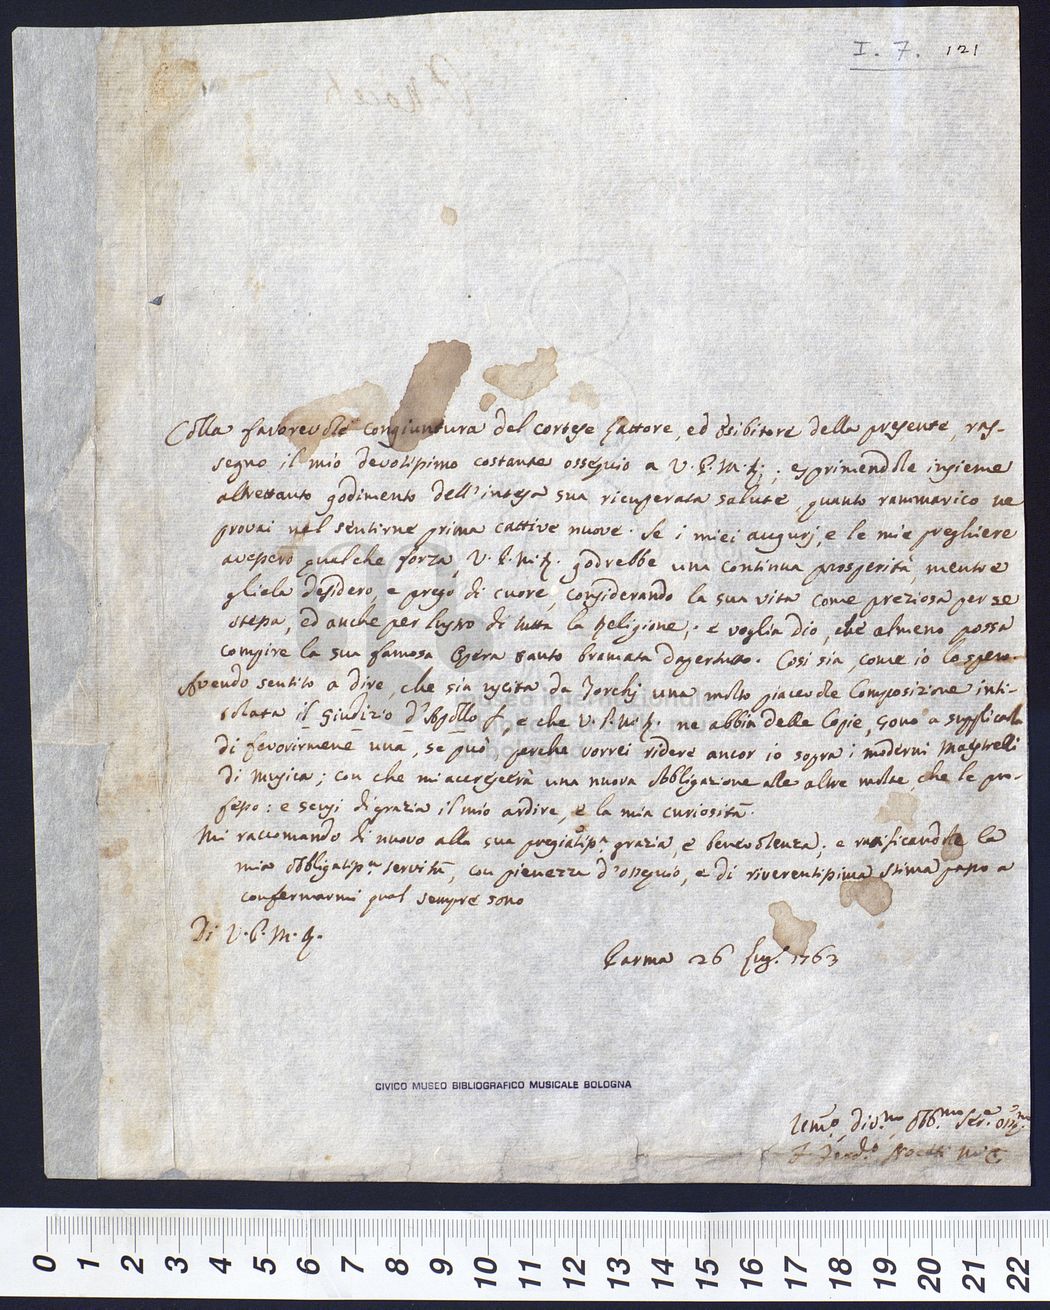 I. 7. 121
Colla favorevole congiuntura del cortese Lattore, ed esibitore della presente, ras-
segno il mio devotissimo costante ossequio a V. P. M. R.; esprimendole insieme
altrettanto godimento dell'intesa sua ricuperata salute, quanto rammarico ne
provai nel sentirne prima cattive nuove. Se i miei augurj, e le mie preghiere
avessero qualche forza, V. P. M. R. godrebbe una continua prosperità, mentre
gliela desidero, e prego di cuore, considerando la sua vita come preziosa per se
stessa, ed anche per lustro di tutta la Religione; e voglia Dio, che almeno possa
compire la sua famosa Opera tanto bramata dapertutto. Così sia, come io lo spero.
Avendo sentito a dire, che sia uscita da Torchj una molto piacevole Composizione inti-
tolata il Giudizio d'Apollo &, e che V. P. M. R. ne abbia delle Copie, sono a supplicarla
di favorirmene una, se può, perche vorrei ridere ancor io sopra i moderni Maestrelli
di Musica; con che mi accrescerà una nuova obbligazione alle altre molte, che le pro-
fesso: e scusi di grazia il mio ardire, e la mia curiosità.
Mi raccomando di nuovo alla sua pregiatiss.ª grazia, e benevolenza; e ratificandole la
mia obbligatiss.ª servitù, con pienezza d'ossequio, e di riverentissima stima passo a
confermarmi qual sempre sono
Di V. P. M. R.
Parma 26 Lugl. 1763
CIVICO MUSEO BIBLIOGRAFICO MUSICALE BOLOGNA
Umo, div.mo obb.mo Ser.e
F. Ferd.o Nocetti
0 1 2 3 4 5 6 7 8 9 10 11 12 13 14 15 16 17 18 19 20 21 22